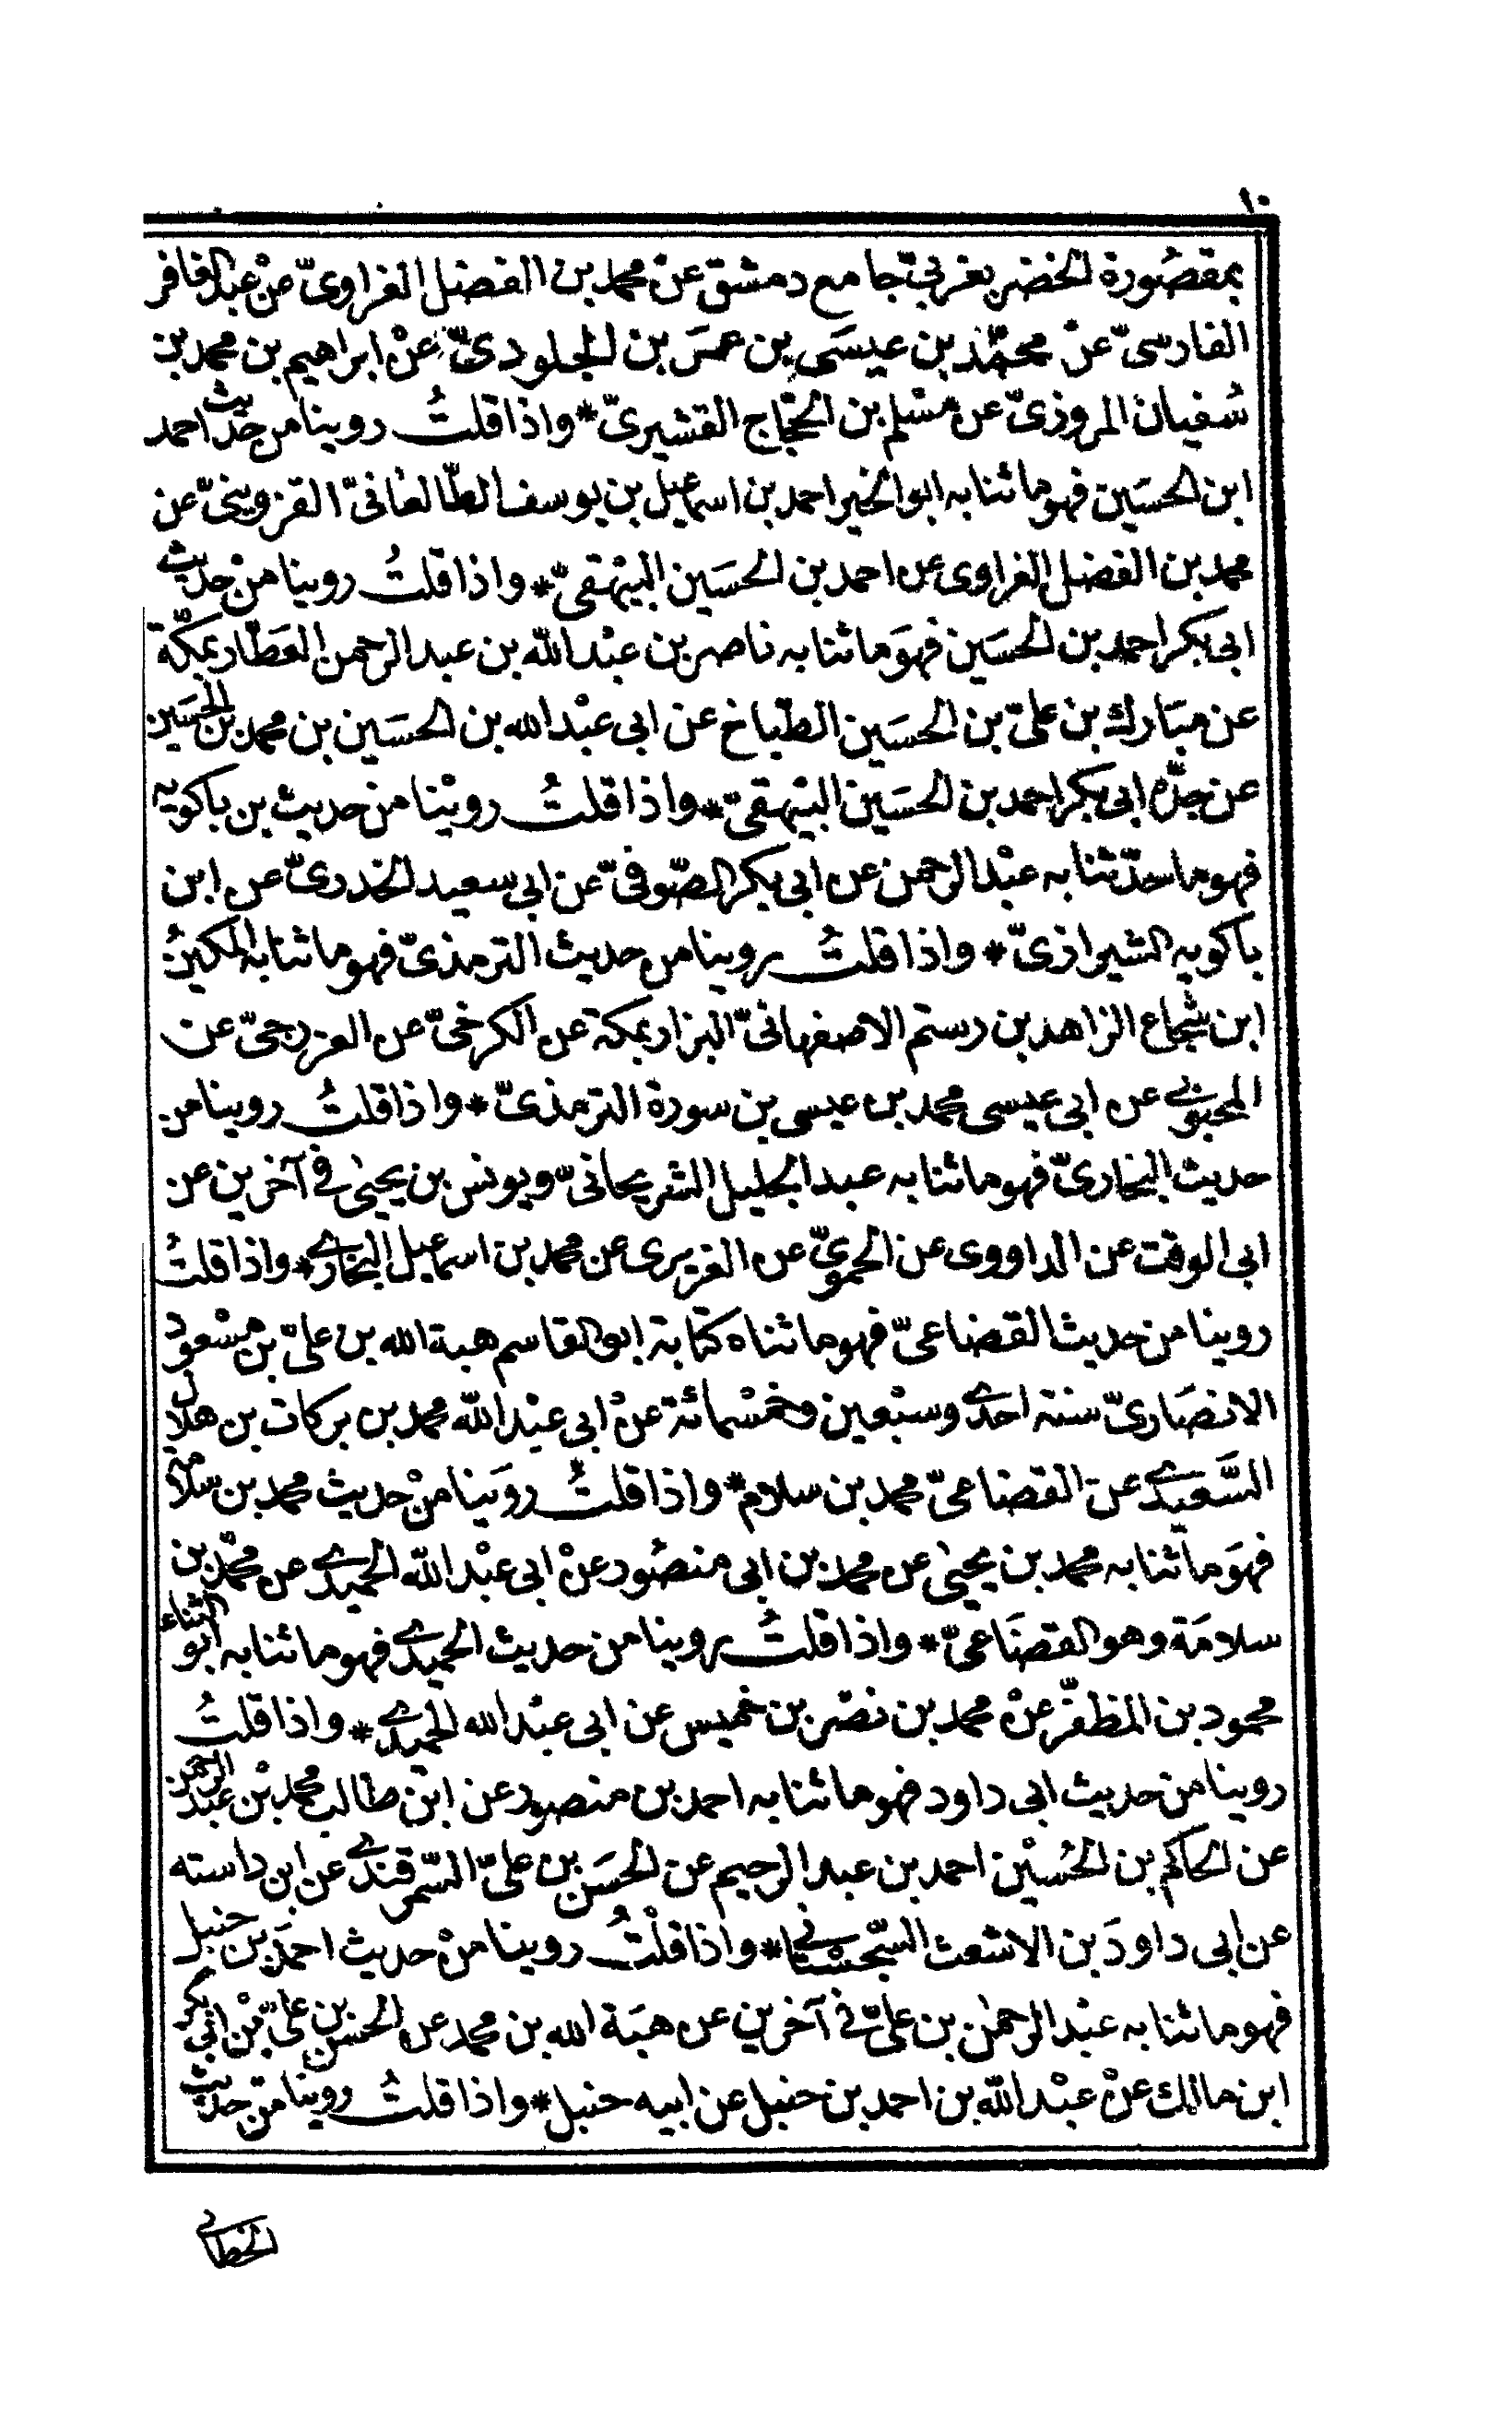 ١٠
بمقصُورة الخضر بغربيّ جامع دمشق عنْ محمد بن الفضل الفراويّ عنْ عبد الغافر
الفارسىّ عنْ محمّد بن عيسَى بن عمرَ بن الجلودىّ عنْ ابراهيم بن محمد بن
سُفيان المروزىّ عن مسْلم بن الحجّاج القشيرىّ * واذا قلتُ روينا من حديث احمد
ابن الحسَين فهو ما ثنا به ابو الخير احمد بن اسماعيل بن يوسف الطّالقانىّ القزوينىّ عن
محمد بن الفضل الفراوى عن احمد بن الحسَين البيْهقىّ * واذا قلتُ روينا منْ حديث
ابى بكر احمد بن الحسَين فهوَ ما ثنا به ناصر بن عبْد اللّه بن عبد الرحمن العَطّار بمكّة
عن مبَارك بن علىّ بن الحسَين الطبّاخ عن ابى عبْد الله بن الحسَين بن محمد بن الحسَين
عن جدّه ابى بكر احمد بن الحسَين البيْهقىّ * واذا قلتُ رويْنا من حديث بن باكويه
فهو ما حدّثنا به عبْد الرحمن عن ابى بكر الصّوفىّ عن ابى سعيد الخدرىّ عن ابن
باكويه الشيرازىّ * واذا قلتُ روينا من حديث الترمذىّ فهو ما ثنا به المكينُ
ابن شجاع الزاهد بن رستم الاصفهانىّ البزار بمكة عن الكرخىّ عن الغزرجىّ عن
المحبوبى عن ابى عيسى محمد بن عيسى بن سورة الترمذىّ * واذا قلتُ روينا من
حديث البخارىّ فهو ما ثنا به عبد الجليل الشريحانىّ ويونس بن يحيٰى فى آخرين عن
ابى الوقت عن الداوودى عن الحموىّ عن الفربرى عن محمد بن اسماعيل البخارى * واذا قلتُ
روينا من حديث القضاعىّ فهو ما ثناه كتابة ابو القاسم هبة الله بن علىّ بن مسْعود
الانصَارىّ سنة احدى وسبْعين وخمْسمائة عنْ ابى عبْد اللّه محمد بن بركات بن هلال
السَّعيدى عن القضاعىّ محمد بن سلام * واذا قلتُ روَينا منْ حديث محمد بن سلامة
فهوَ ما ثنا به محمد بن يحيٰى عن محمد بن ابى منصُور عنْ ابى عبْد اللّه الحميدى عن محمّد بن
سلامَة وهو القضَاعىّ * واذا قلتُ روينا من حديث الحميدى فهو ما ثنا به ابو الثناء
محمود بن المظفّر عنْ محمد بن نصْر بن خميس عن ابى عبْد الله الحميدى * واذا قلتُ
روينا من حديث ابى داود فهو ما ثنا به احمد بن منصور عن ابن طالب محمد بْن عبد الرحمن
عن الحاكم بن الحُسيْن احمد بن عبد الرحيم عن الحسَن بن علىّ السّمرقندى عن ابن داسته
عن ابى داودَ بن الاشعث السّجسْتانى * واذا قلْتُ روينا منْ حديث احمدَ بن حنبل
فهو ما ثنا به عبْد الرحمٰن بن علىّ فى آخرين عن هبَة الله بن محمد عن الحسَن بن علىّ عنْ ابى بكر
ابن مالك عنْ عبْد اللّه بن احمد بن حنبل عن ابيه حنبل * واذا قلتُ روينا من حديث
الخطابى